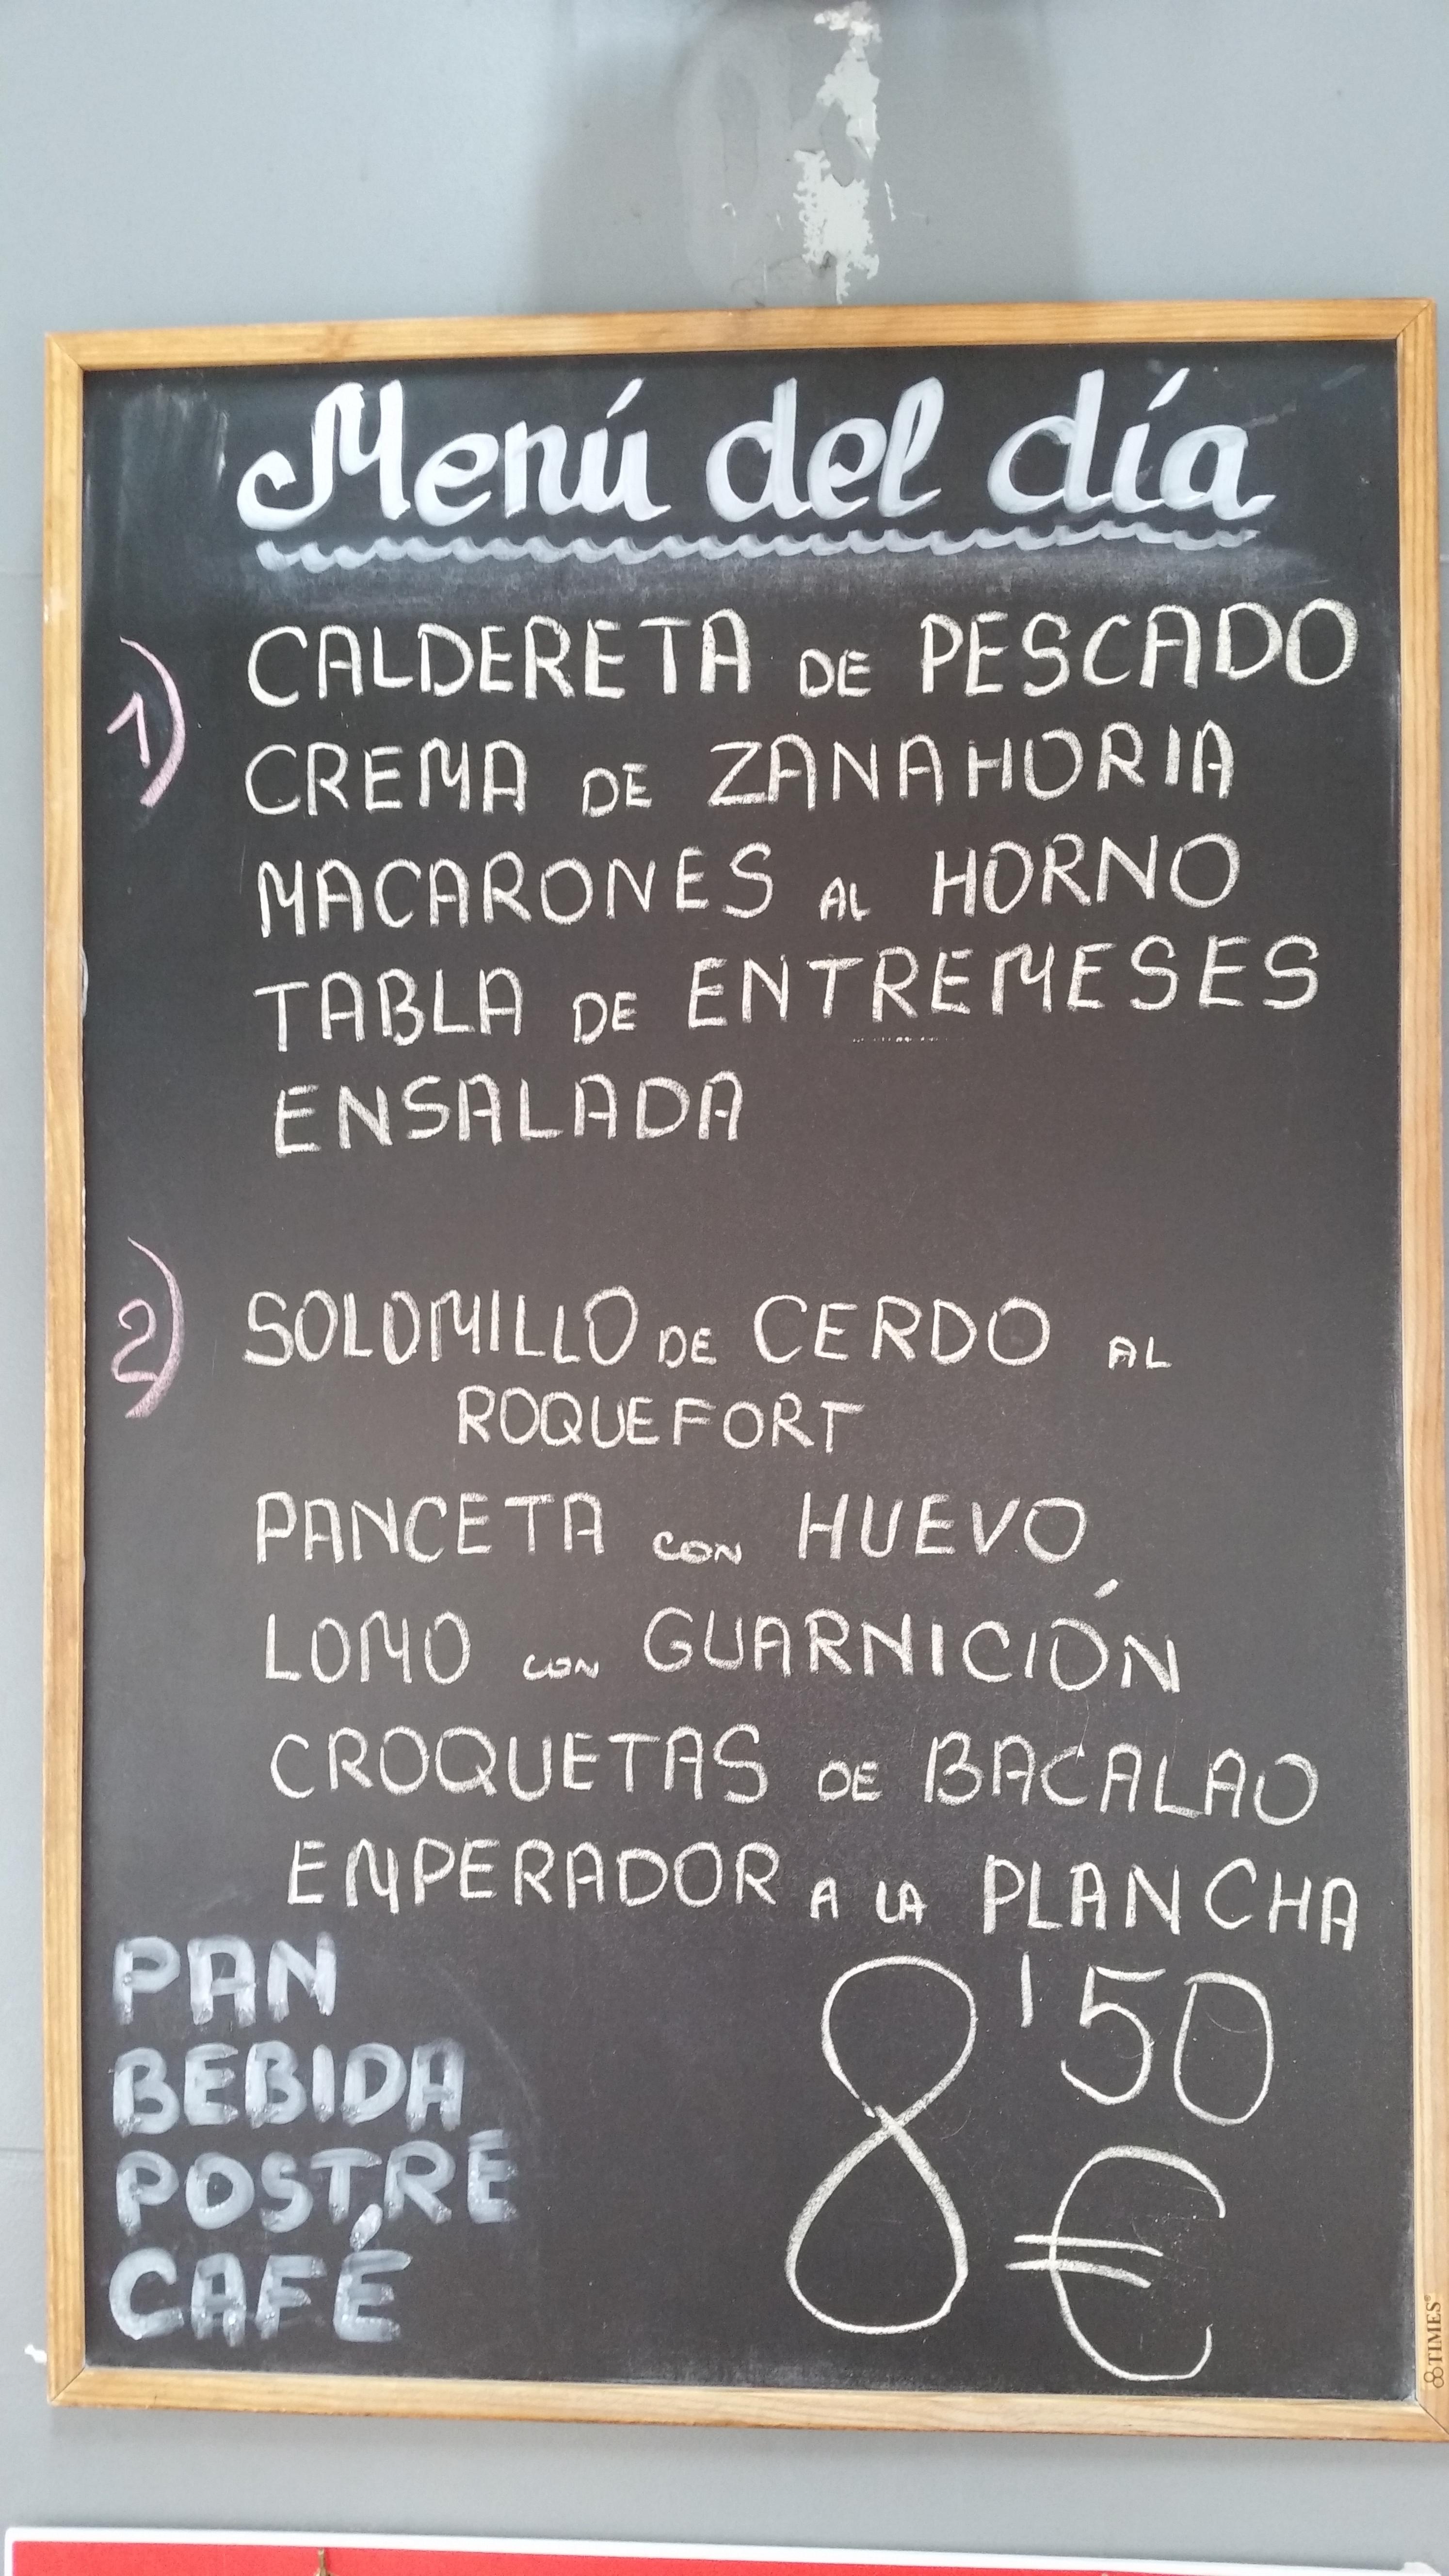 Menú del día
1) CALDERETA DE PESCADO
CREMA DE ZANAHORIA
MACARONES AL HORNO
TABLA DE ENTREMESES
ENSALADA
2) SOLOMILLO DE CERDO AL
ROQUEFORT
PANCETA CON HUEVO
LOMO CON GUARNICIÓN
CROQUETAS DE BACALAO
EMPERADOR A LA PLANCHA
PAN
BEBIDA
POSTRE
CAFÉ
8'50
€
TIMES